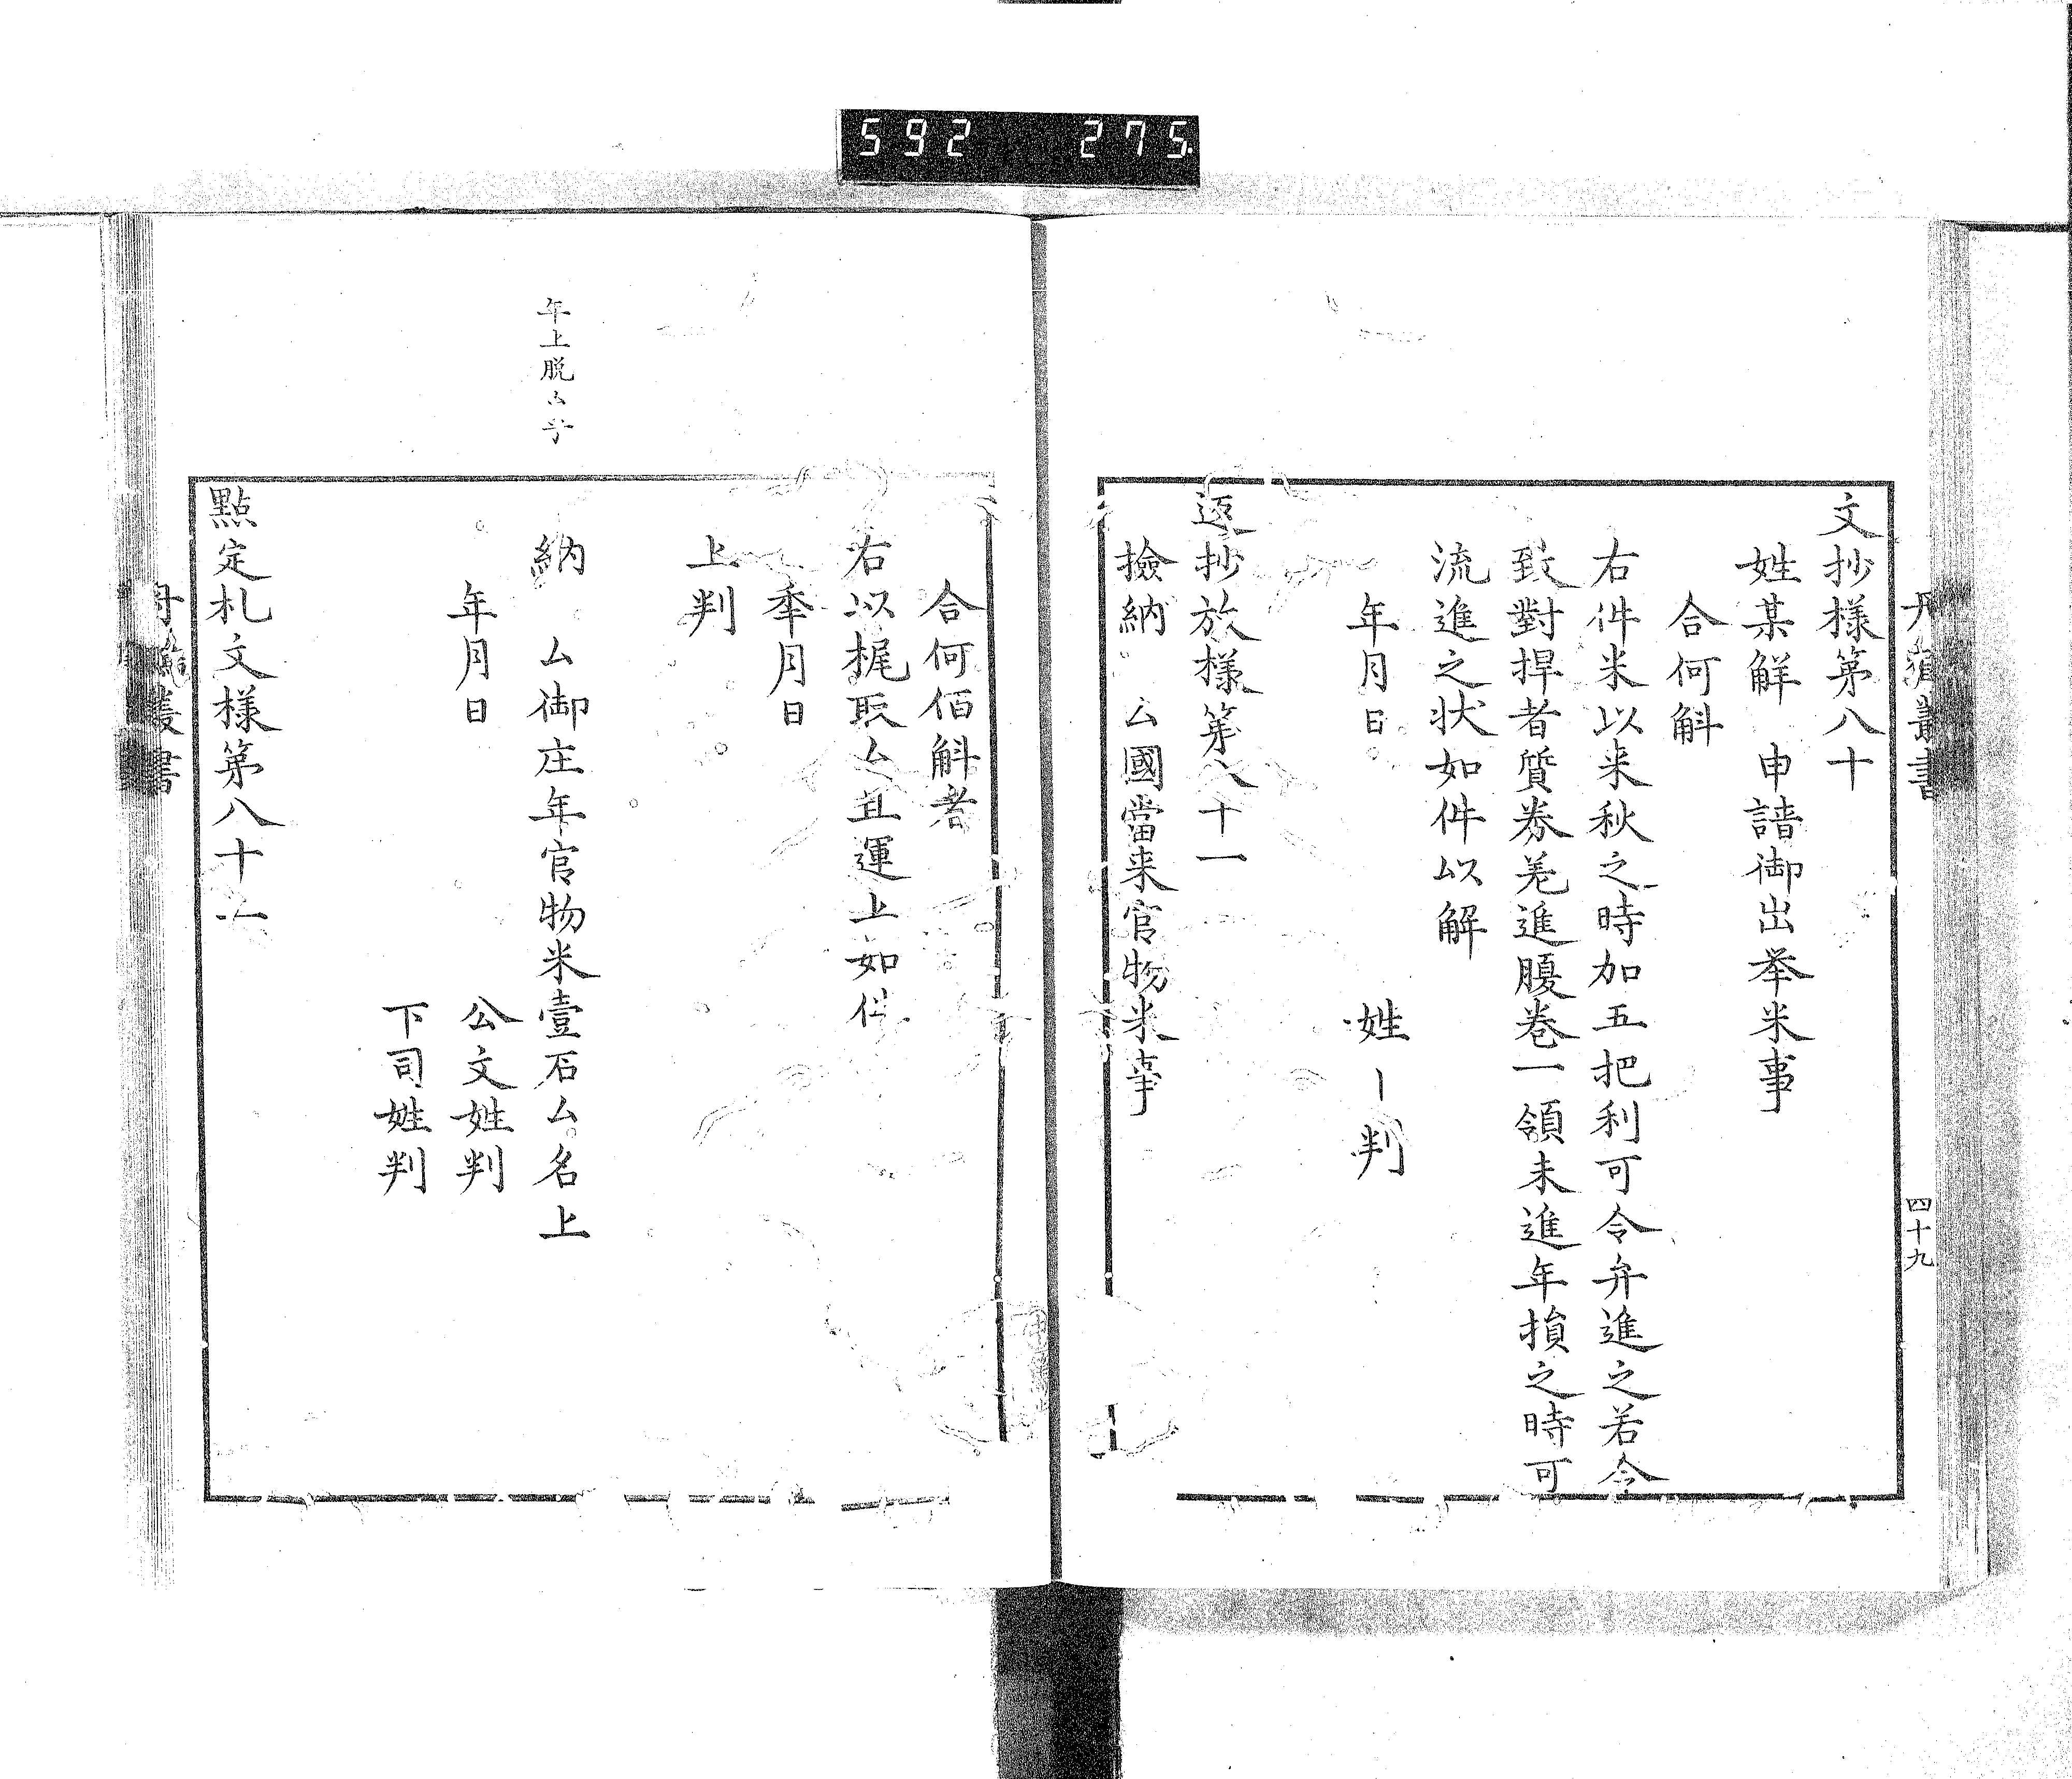 592 275
文抄様第八十
姓某解 申請御出挙米事
合何斛
右件米以来秋之時加五把利可令弁進之若令
致對捍者質券羌進腹巻一領未進年損之時可
流進之状如件以解
年月日 姓〡判
返抄放様第八十一
撿納 厶國當来官物米事
四十九
年上脱厶字
合何佰斛者
右以梶取厶且運上如件
年月日
上判
納 厶御庄年官物米壹石厶名上
年月日 公文姓判
下司姓判
點定札文様第八十一
叢書